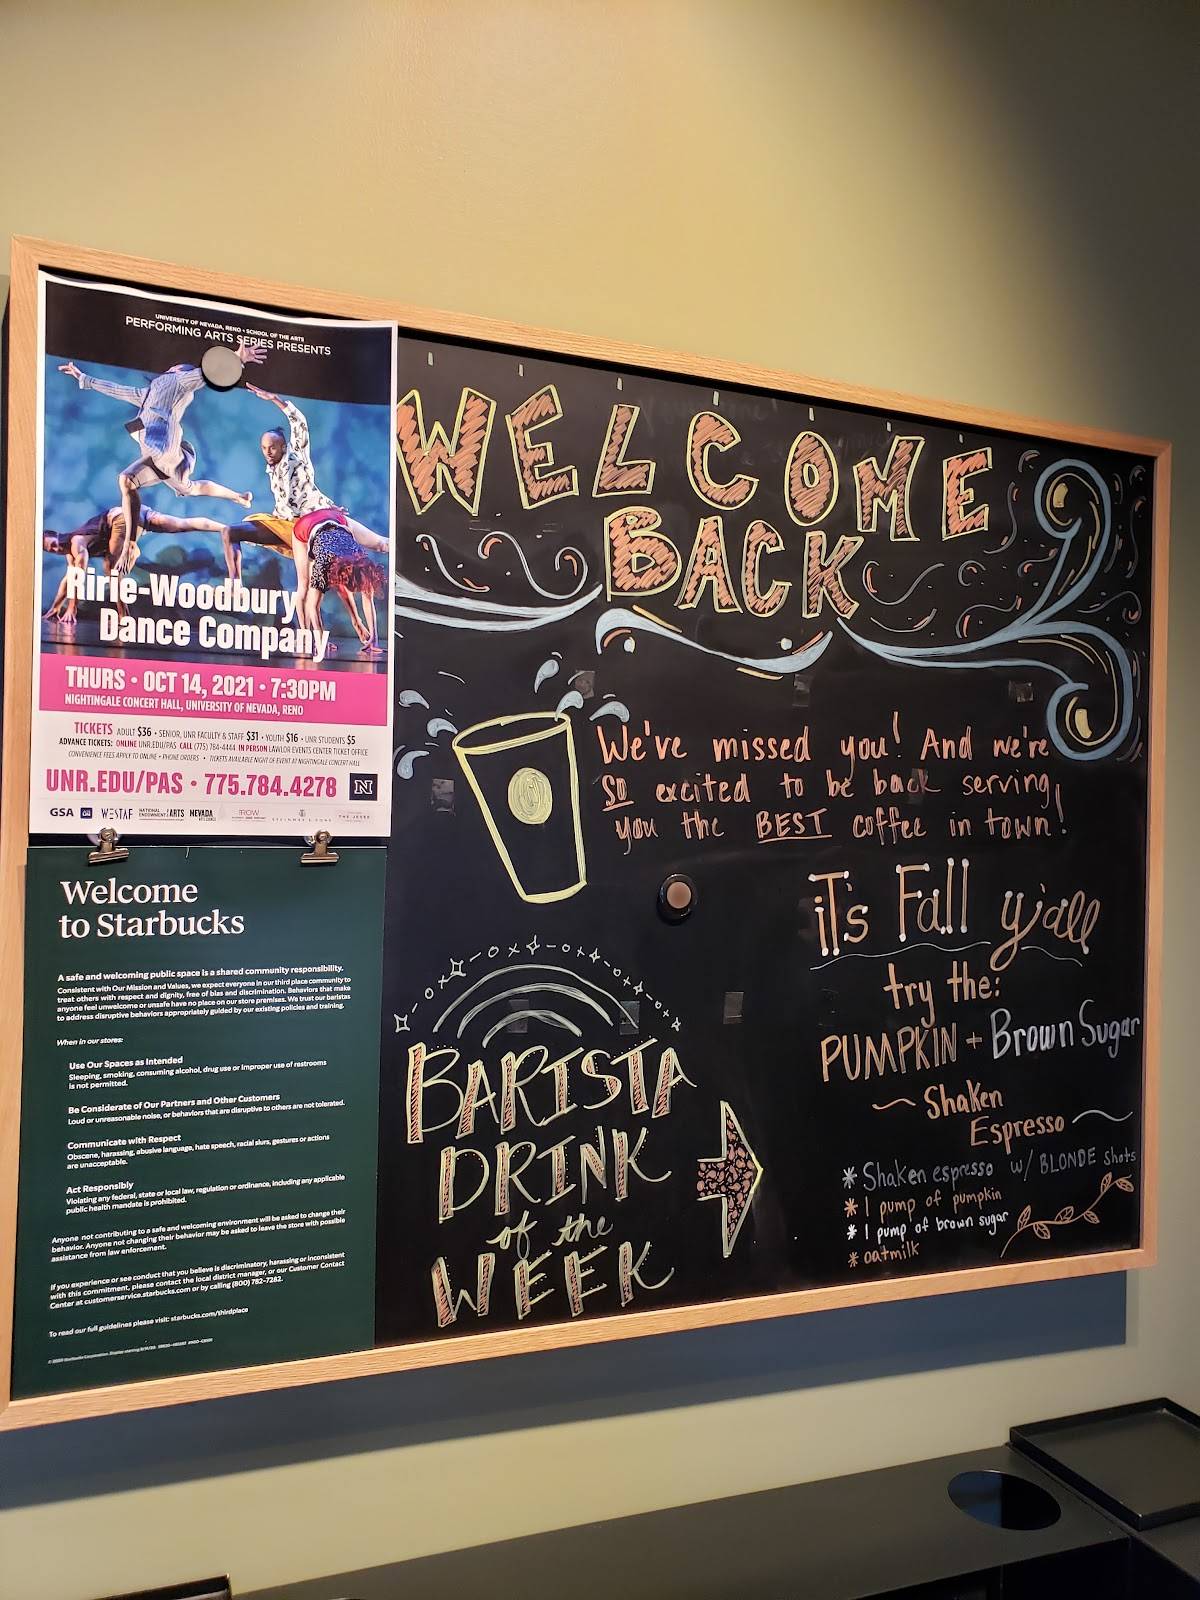 UNIVERSITY OF NEVADA, RENO • SCHOOL OF THE ARTS
PERFORMING ARTS SERIES PRESENTS
Ririe-Woodbury
Dance Company
THURS • OCT 14, 2021 • 7:30PM
NIGHTINGALE CONCERT HALL, UNIVERSITY OF NEVADA, RENO
TICKETS ADULT $36 • SENIOR, UNR FACULTY & STAFF $31 • YOUTH $16 • UNR STUDENTS $5
ADVANCE TICKETS: ONLINE UNR.EDU/PAS CALL (775) 784-4444 IN PERSON LAWLOR EVENTS CENTER TICKET OFFICE
CONVENIENCE FEES APPLY TO ONLINE + PHONE ORDERS • TICKETS AVAILABLE NIGHT OF EVENT AT NIGHTINGALE CONCERT HALL
UNR.EDU/PAS • 775.784.4278 N
GSA WESTAF NATIONAL ENDOWMENT ARTS NEVADA
Welcome
to Starbucks
A safe and welcoming public space is a shared community responsibility.
Consistent with Our Mission and Values, we expect everyone in our third place community to
treat others with respect and dignity, free of bias and discrimination. Behaviors that make
anyone feel unwelcome or unsafe have no place on our store premises. We trust our baristas
to address disruptive behaviors appropriately guided by our existing policies and training.
When in our stores:
Use Our Spaces as Intended
Sleeping, smoking, consuming alcohol, drug use or improper use of restrooms
is not permitted.
Be Considerate of Our Partners and Other Customers
Loud or unreasonable noise, or behaviors that are disruptive to others are not tolerated.
Communicate with Respect
Obscene, harassing, abusive language, hate speech, racial slurs, gestures or actions
are unacceptable.
Act Responsibly
Violating any federal, state or local law, regulation or ordinance, including any applicable
public health mandate is prohibited.
Anyone not contributing to a safe and welcoming environment will be asked to change their
behavior. Anyone not changing their behavior may be asked to leave the store with possible
assistance from law enforcement.
If you experience or see conduct that you believe is discriminatory, harassing or inconsistent
with this commitment, please contact the local district manager, or our Customer Contact
Center at customerservice.starbucks.com or by calling (800) 782-7282.
To read our full guidelines please visit: starbucks.com/thirdplace
WELCOME
BACK
We've missed you! And we're
SO excited to be back serving
you the BEST coffee in town!
iT's Fall y'all
try the:
PUMPKIN + Brown Sugar
~ Shaken
Espresso ~
* Shaken espresso w/ BLONDE shots
* 1 pump of pumpkin
* 1 pump of brown sugar
* oatmilk
BARISTA
DRINK
of the
WEEK